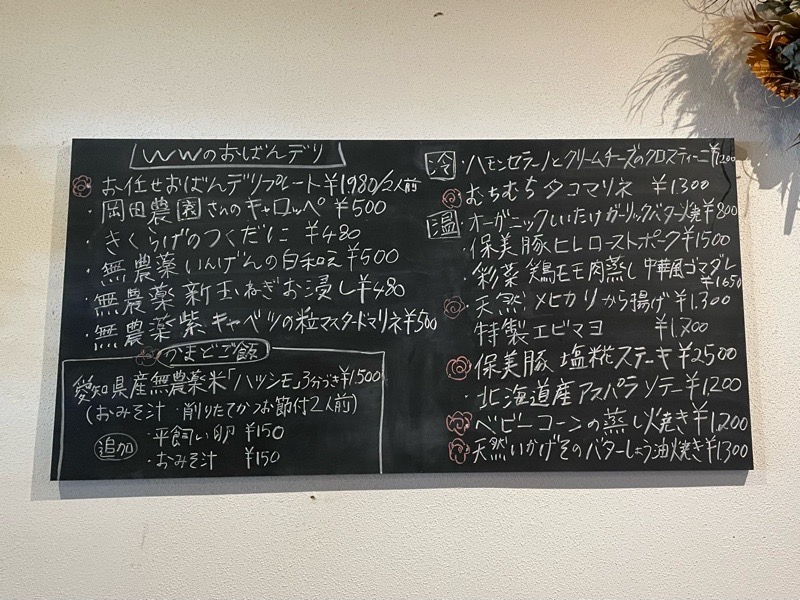 wwのおばんデリ
お任せおばんデリプレート ¥1980/2人前
・岡田農園さんのキャロッペ ¥500
・きくらげのつくだに ¥480
・無農薬いんげんの白和え ¥500
・無農薬新玉ねぎお浸し ¥480
・無農薬紫キャベツの粒マスタードマリネ ¥500
かまどご飯
愛知県産無農薬米「ハツシモ」3分づき ¥1,500
(おみそ汁・削りたてかつお節付2人前)
追加
・平飼い卵 ¥150
・おみそ汁 ¥150
冷 ・ハモンセラーノとクリームチーズのクロスティーニ ¥1,200
むちむちタコマリネ ¥1300
温 ・オーガニックしいたけガーリックバター焼 ¥800
・保美豚ヒレローストポーク ¥1500
・彩菜鶏モモ肉蒸し中華風ゴマダレ ¥1650
・天然メヒカリから揚げ ¥1,300
特製エビマヨ ¥1,700
・保美豚塩糀ステーキ ¥2500
・北海道産アスパラソテー ¥1200
・ベビーコーンの蒸し焼き ¥1,200
・天然いかげそのバターしょう油焼き ¥1300